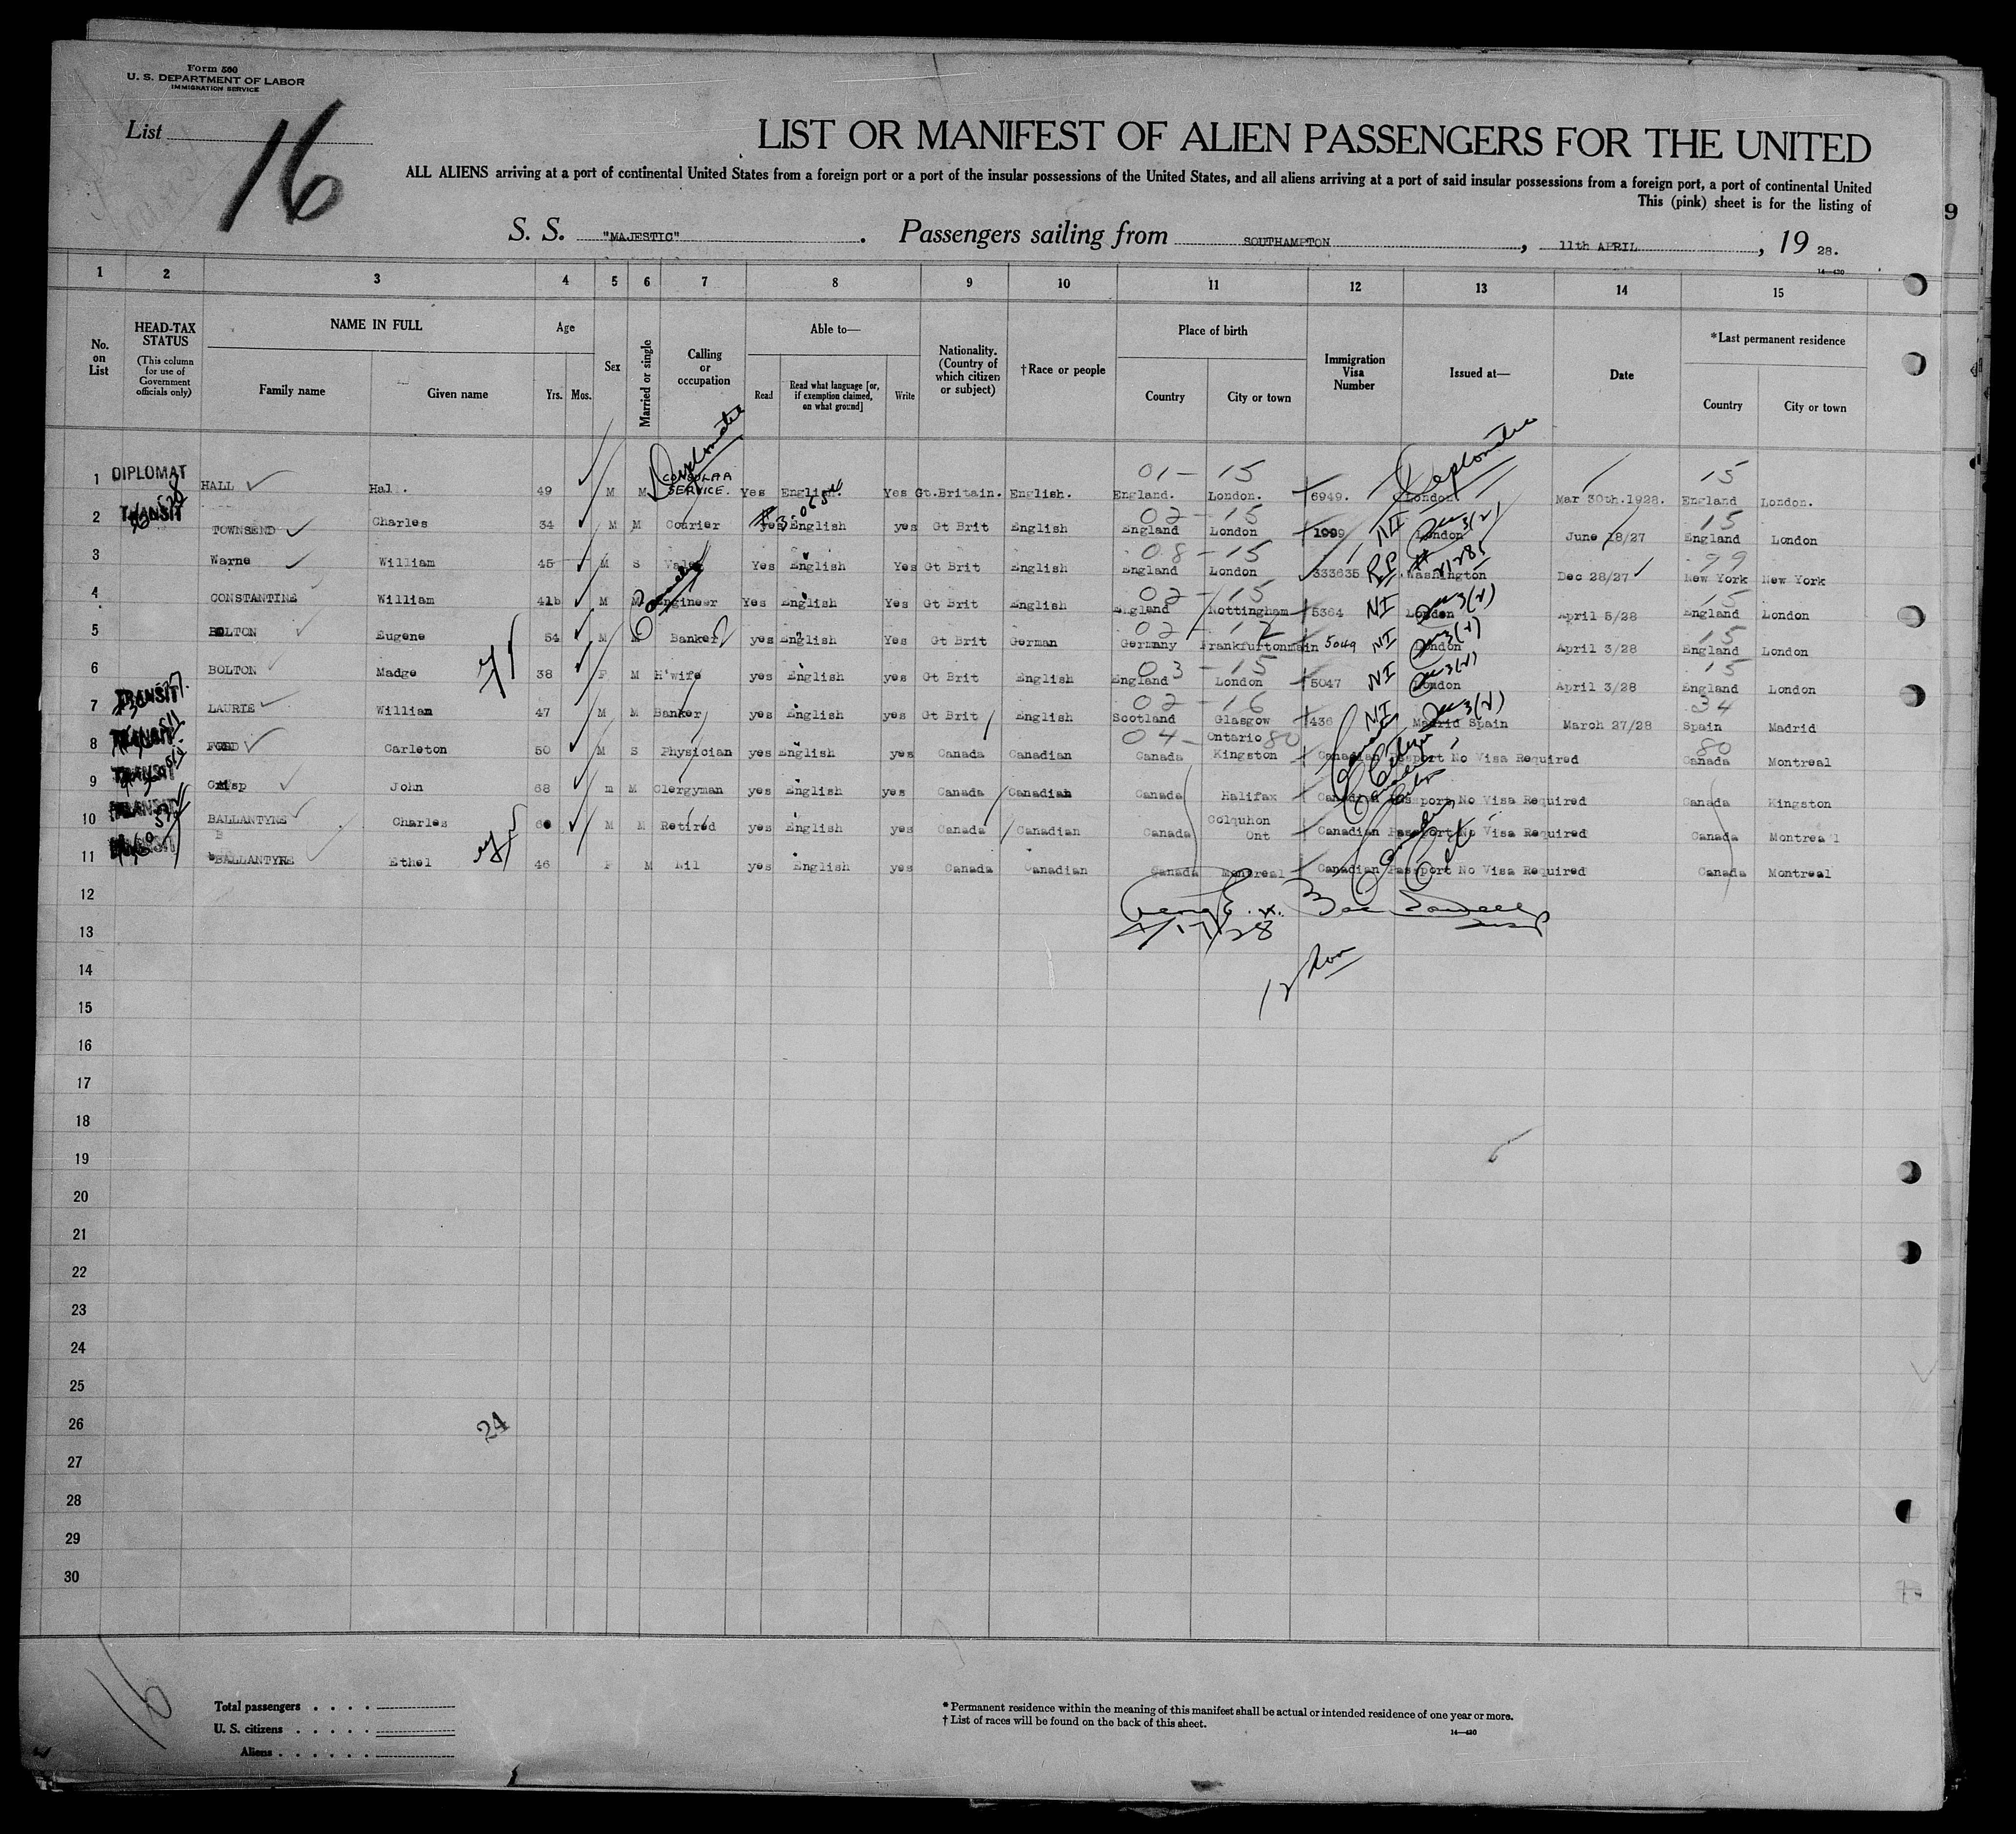 Form 500
U. S. DEPARTMENT OF LABOR
IMMIGRATION SERVICE
List 16
LIST OR MANIFEST OF ALIEN PASSENGERS FOR THE UNITED
ALL ALIENS arriving at a port of continental United States from a foreign port or a port of the insular possessions of the United States, and all aliens arriving at a port of said insular possessions from a foreign port, a port of continental United
This (pink) sheet is for the listing of
9
S. S. "MAJESTIC" . Passengers sailing from SOUTHAMPTON , 11th APRIL , 19 28.
14—430
1 2 3 4 5 6 7 8 9 10 11 12 13 14 15
No. on List
HEAD-TAX STATUS (This column for use of Government officials only)
NAME IN FULL Family name Given name
Age Yrs. Mos.
Sex
Married or single
Calling or occupation
Able to— Read Read what language [or, if exemption claimed, on what ground] Write
Nationality. (Country of which citizen or subject)
†Race or people
Place of birth Country City or town
Immigration Visa Number
Issued at—
Date
*Last permanent residence Country City or town
Diplomatic Diplomatic
01 - 15 15
1 DIPLOMAT HALL Hal. 49 M M CONSULAR SERVICE. Yes English. Yes Gt.Britain. English. England. London. 6949. London Mar 30th.1928. England London.
02 - 15 15
2 TRANSIT TOWNSEND Charles 34 M M Courier yes English yes Gt Brit English England London 1999 NI London June 18/27 England London
08 - 15 99
3 Warne William 45 M S Valet Yes English Yes Gt Brit English England London 333635 RP Washington Dec 28/27 New York New York
02 - 15 15
4 CONSTANTINE William 41 M M Engineer Yes English Yes Gt Brit English England Nottingham 5364 NI London 3(2) April 5/28 England London
02 - 12 15
5 BOLTON Eugene 54 M M Banker yes English Yes Gt Brit German Germany Frankfurtonmain 5049 NI London 3(2) April 3/28 England London
03 - 15 15
6 BOLTON Madge 38 F M H'wife yes English yes Gt Brit English England London 5047 NI London 3(2) April 3/28 England London
02 - 16 34
7 TRANSIT LAURIE William 47 M M Banker yes English yes Gt Brit English Scotland Glasgow 436 NI Madrid Spain 3(2) March 27/28 Spain Madrid
04 - 80 80
8 TRANSIT Carleton 50 M S Physician yes English yes Canada Canadian Canada Ontario Kingston Canadian Passport No Visa Required Canada Montreal
9 TRANSIT Crisp John 68 m M Clergyman yes English yes Canada Canadian Canada Halifax Canadian Passport No Visa Required Canada Kingston
10 TRANSIT BALLANTYNE Charles M M Retired yes English yes Canada Canadian Canada Colquhon Ont Canadian Passport No Visa Required Canada Montreal
11 TRANSIT BALLANTYNE Ethel 46 F M Nil yes English yes Canada Canadian Canada Montreal Canadian Passport No Visa Required Canada Montreal
12
4/17/28
13
14
15
16
17
18
19
20
21
22
23
24
25
26
24
27
28
29
30
16
Total passengers . . . .
U. S. citizens . . . . .
Aliens . . . . . .
* Permanent residence within the meaning of this manifest shall be actual or intended residence of one year or more.
† List of races will be found on the back of this sheet.
14—430